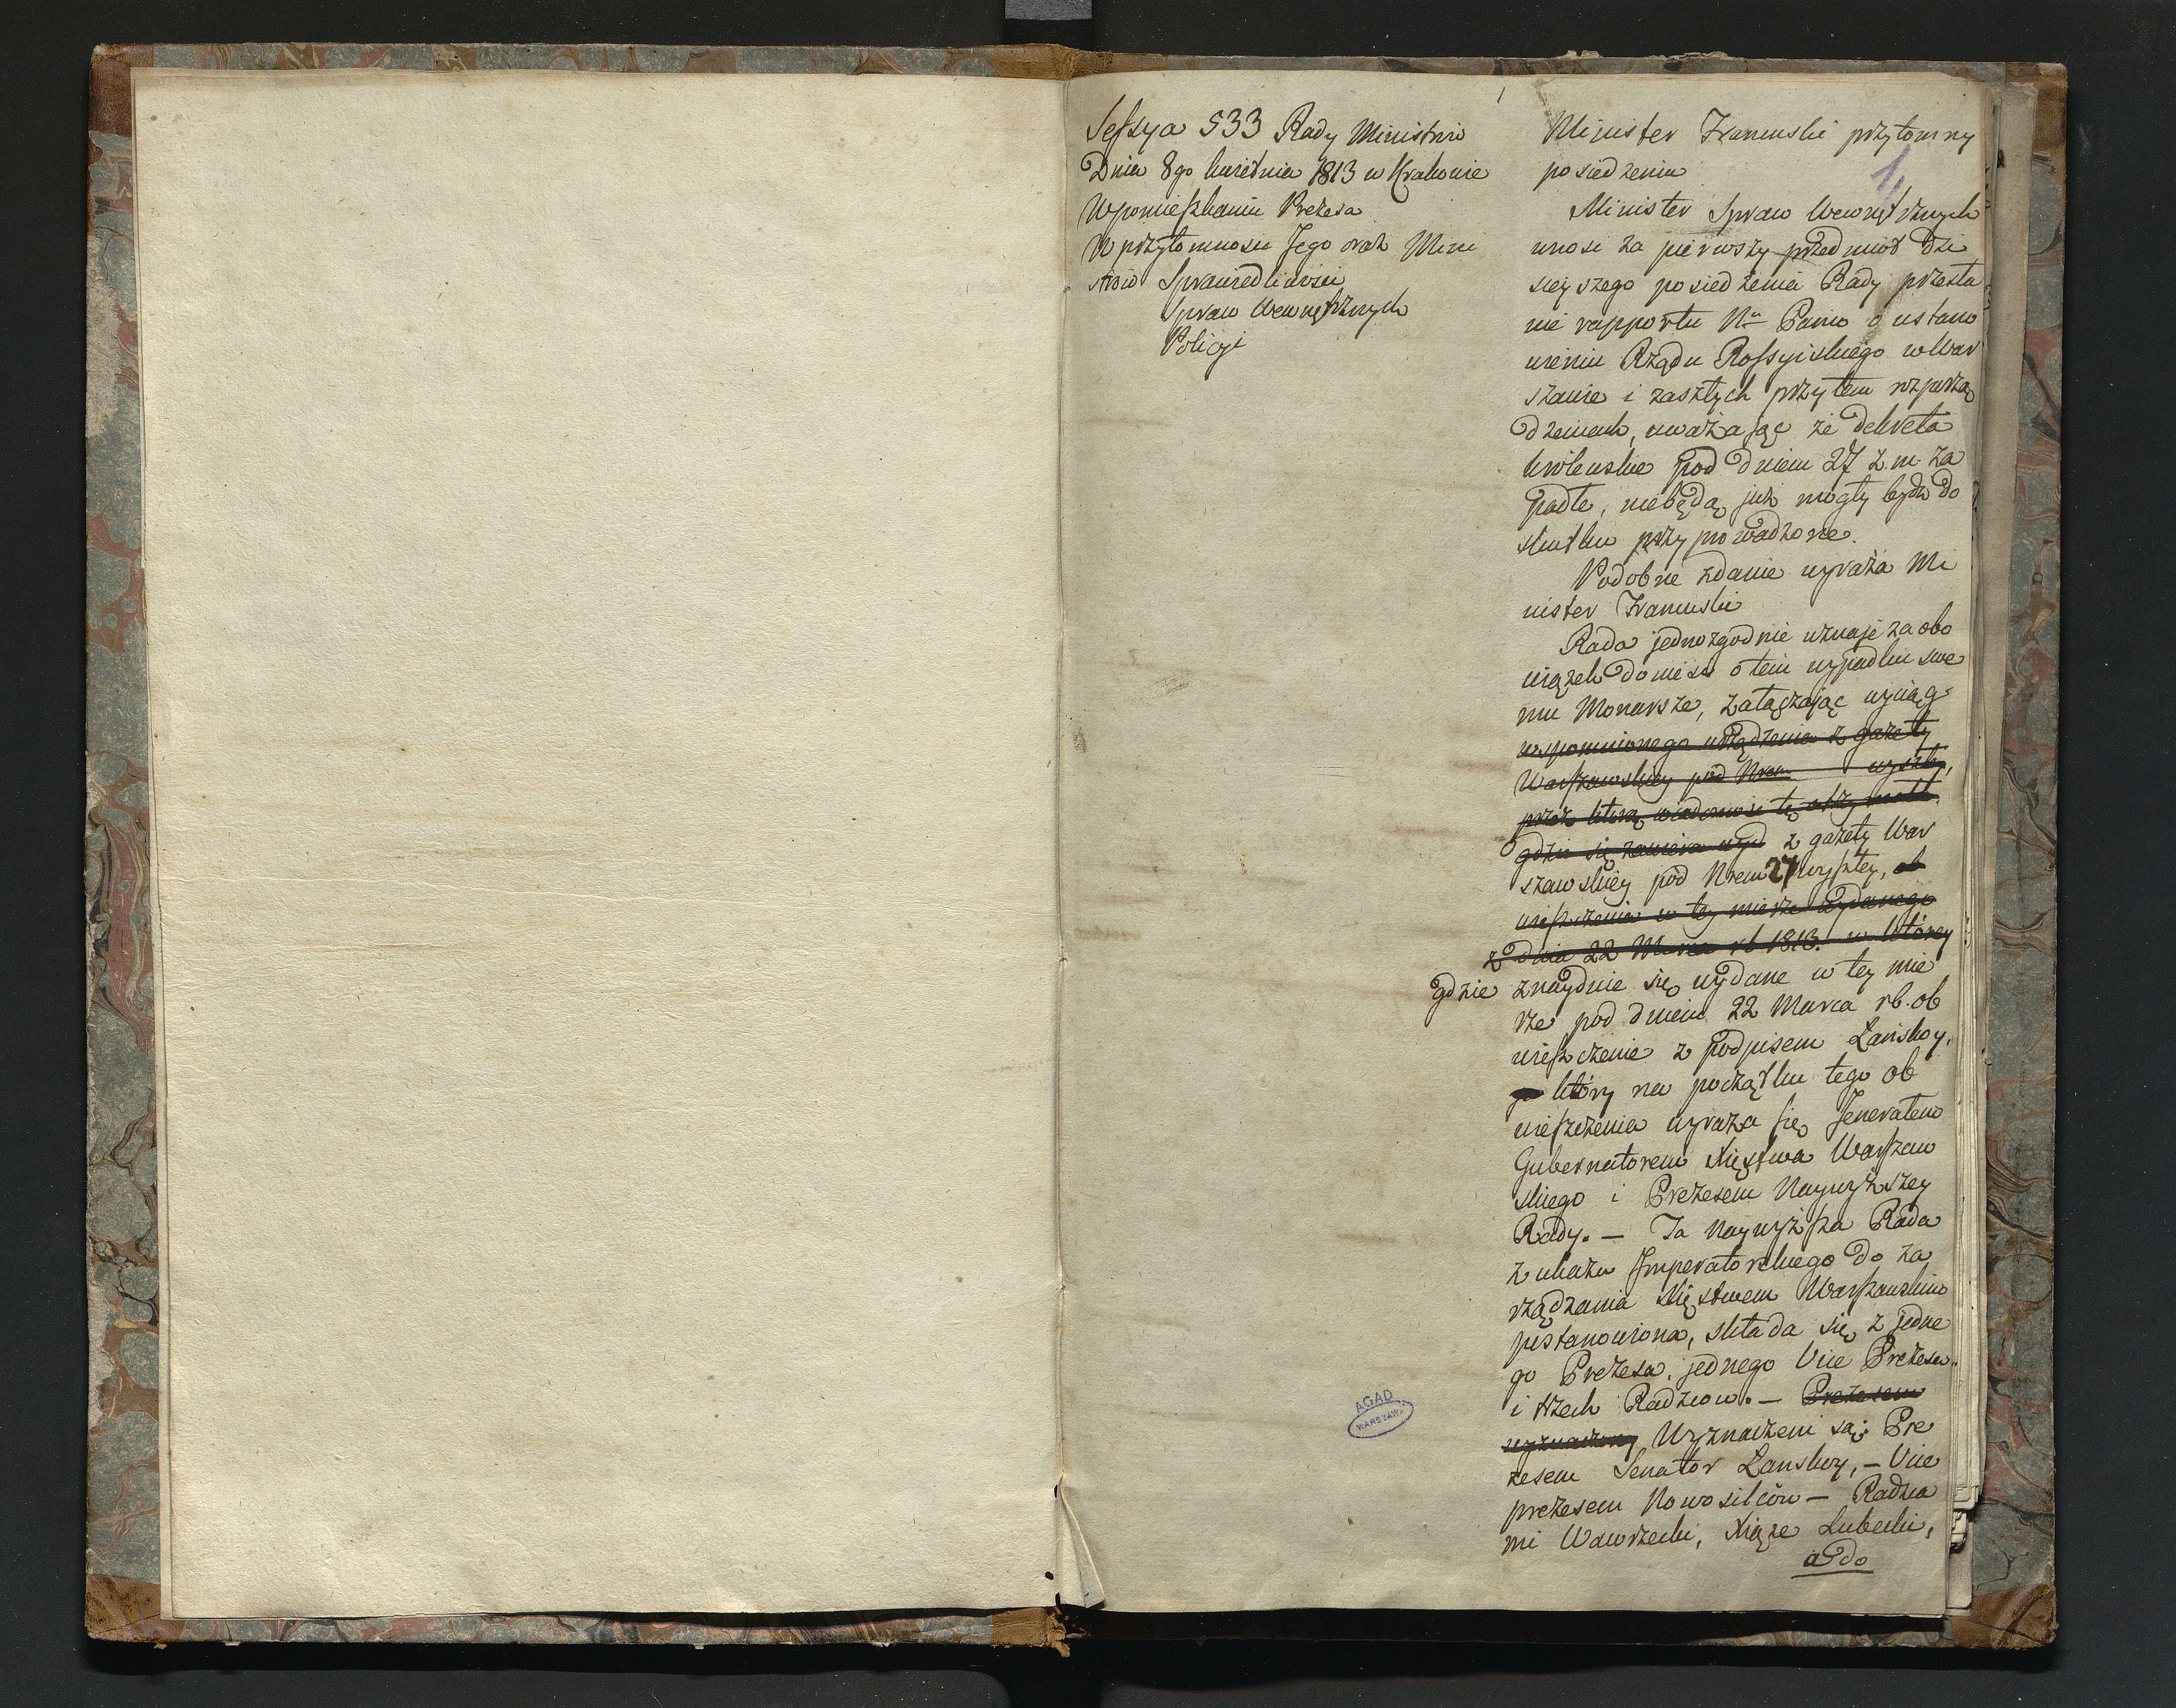 Sessya 533 Rady Ministrów
Dnia 8go kwietnia 1813 w Krakowie
W pomieszkaniu Prezesa
W przytomności Jego oraz Mini
strów Sprawiedliwości
Spraw Wewnętrznych
Policyi
1
Minister przytomny
posiedzeniu
1
Minister Spraw Wewnętrznych
wnosi za pierwszy przedmiot dzi
sieyszego posiedzenia Rady przesła
nie rapportu Nu Panu o ustano
wieniu Rządu Rossyiskiego w War
szawie i zaszłych przytem rozporzą
dzeniach, uważając że dekreta
królewskie pod dniem 27 z. m. za
padłe, niebędą już mogły bydź do
skutku przyprowadzone.
Podobne zdanie wyraża Mi
nister
Rada jednozgodnie uznaje za obo
wiązek donieść o tem wypadku swe
mu Monarsze, załączając wyciąg
wspomnionego urządzenia z gazety
Warszawskiey pod Nrem wyszłey,
przez którą wiadomość tę otrzymała.
gdzie się zawiera wyd z gazety War
szawskiey pod Nrem 27 wyszłey, ob
wieszczenia w tey mierze wydanego
z dnia 22 Marca rb 1813. w którey
gdzie znayduie się wydane w tey mie
rze pod dniem 22 Marca rb. ob
wieszczenie z podpisem Łanskoy,
który na początku tego ob
wieszczenia wyraża się Jenerałem
Gubernatorem Xięstwa Warszaw
skiego i Prezesem Naywyższey
Rady. — Ta Naywyższa Rada
z ukazu Imperatorskiego do za
rządzania Xięstwem Warszawskim
postanowiona, składa się z jedne
go Prezesa, jednego Vice Prezesa
i trzech Radzców. — Prezesem
wyznaczony Wyznaczeni są: Pre
zesem Senator Łanskoy, — Vice
prezesem Nowosilców — Radzca
mi Wawrzecki, Xiąże Lubecki,
a do
AGAD
WARSZAWA